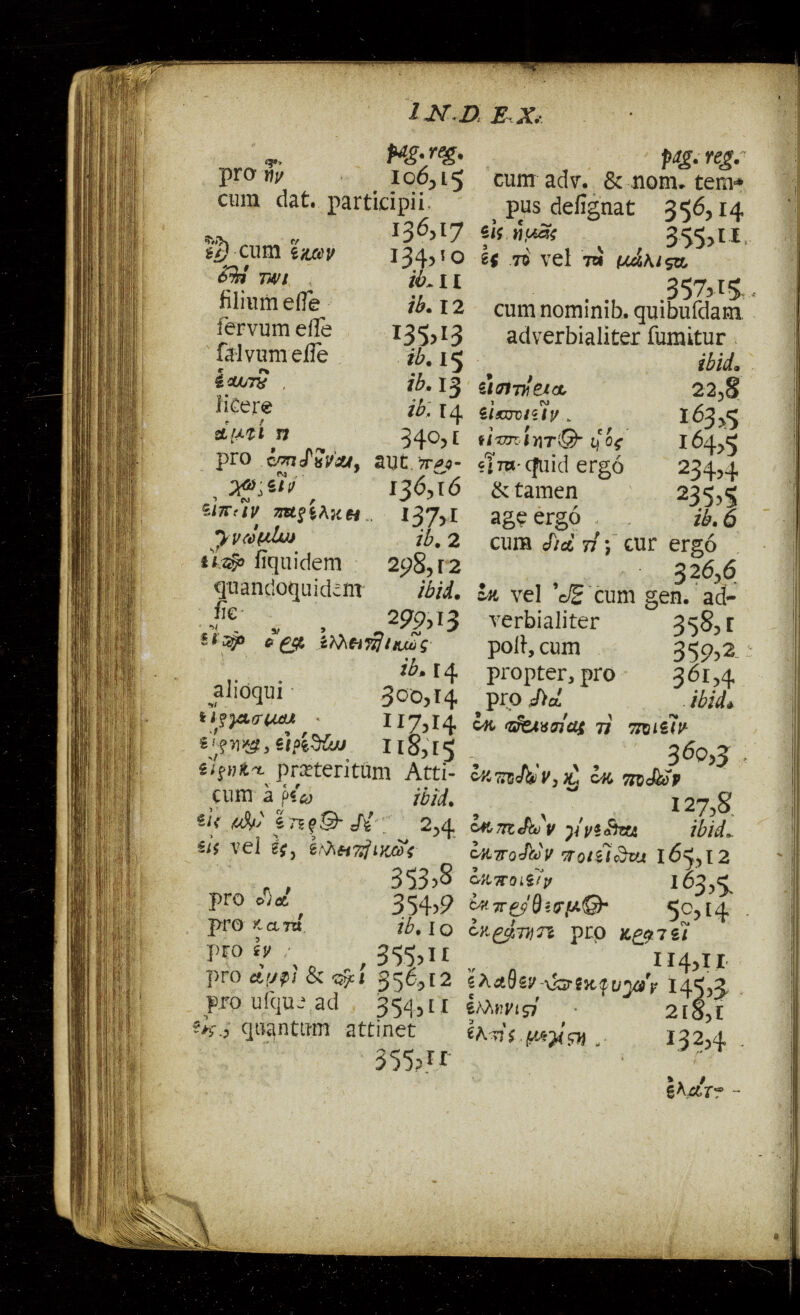 IND EX.
pag. reg.
pro ἦν 106,15
cum dat. participii
136,17
εἶ) cum ἑκὼν 134,10
ἐπὶ τινι ib. 11
filium esse ib. 12
servum esse 135,13
salvum esse ib. 15
ἑαυτȣ͂ ib. 13
licere ib. 14
340,1
pro aut
136,16
εἰπεῖν 137,1
γνώμlω ib. 2
εἴπϸ siquidem 298,12
quandoquidem ibid.
sic 299,13
εἴπϸ ἑλλειπτικῶς
ib. 14
alioqui 300,14
εἴργασμαι 117,14
118,15
εἴρηκα præteritum Atti-
cum à ῥέω ibid.
2,4
εἰς vel ἐς, ἑλλειπτικῶς
353,8
pro διὰ 354,9
pro κατὰ ib. 10
pro ἐν 355,11
pro ἀμφὶ & περὶ 356,12
pro usque ad 354,11
εἰς, quantum attinet
355,11
pag. reg.
cum adv. & nom. tem-
pus designat 356,14
εἰς ἡμᾶς 355,11.
ἐς τὸ vel τὰ μάλιϛα
357,15.
cum nominib. quibusdam
adverbialiter sumitur
ibid.
22,8
163,5
164,5
εἶτα quid ergo 234,4
& tamen 235,5
age ergo ib. 6
cum διὰ τί; cur ergo
326,6
ἐκ vel ἐξ cum gen. ad-
verbialiter 358,1
post, cum 359,2
propter, pro 361,4
pro διὰ ibid.
ἐκ τι ποιεῖν
360,3
ἐκποδὼν, ϗ ἐκ ποδῶν
127,8
ἐκποδὼν γίνεϑαι ibid.
ἐκποδὼν ποιεῖϑαι 165,12
ἐκποιεῖν 163,5
50,14
pro κρατεῖ
114,11
ἔλαθεν 145,3
ἑλληνιϛὶ 218,1
ἐλπὶς μεγίϛη 132,4
ἐλατ-